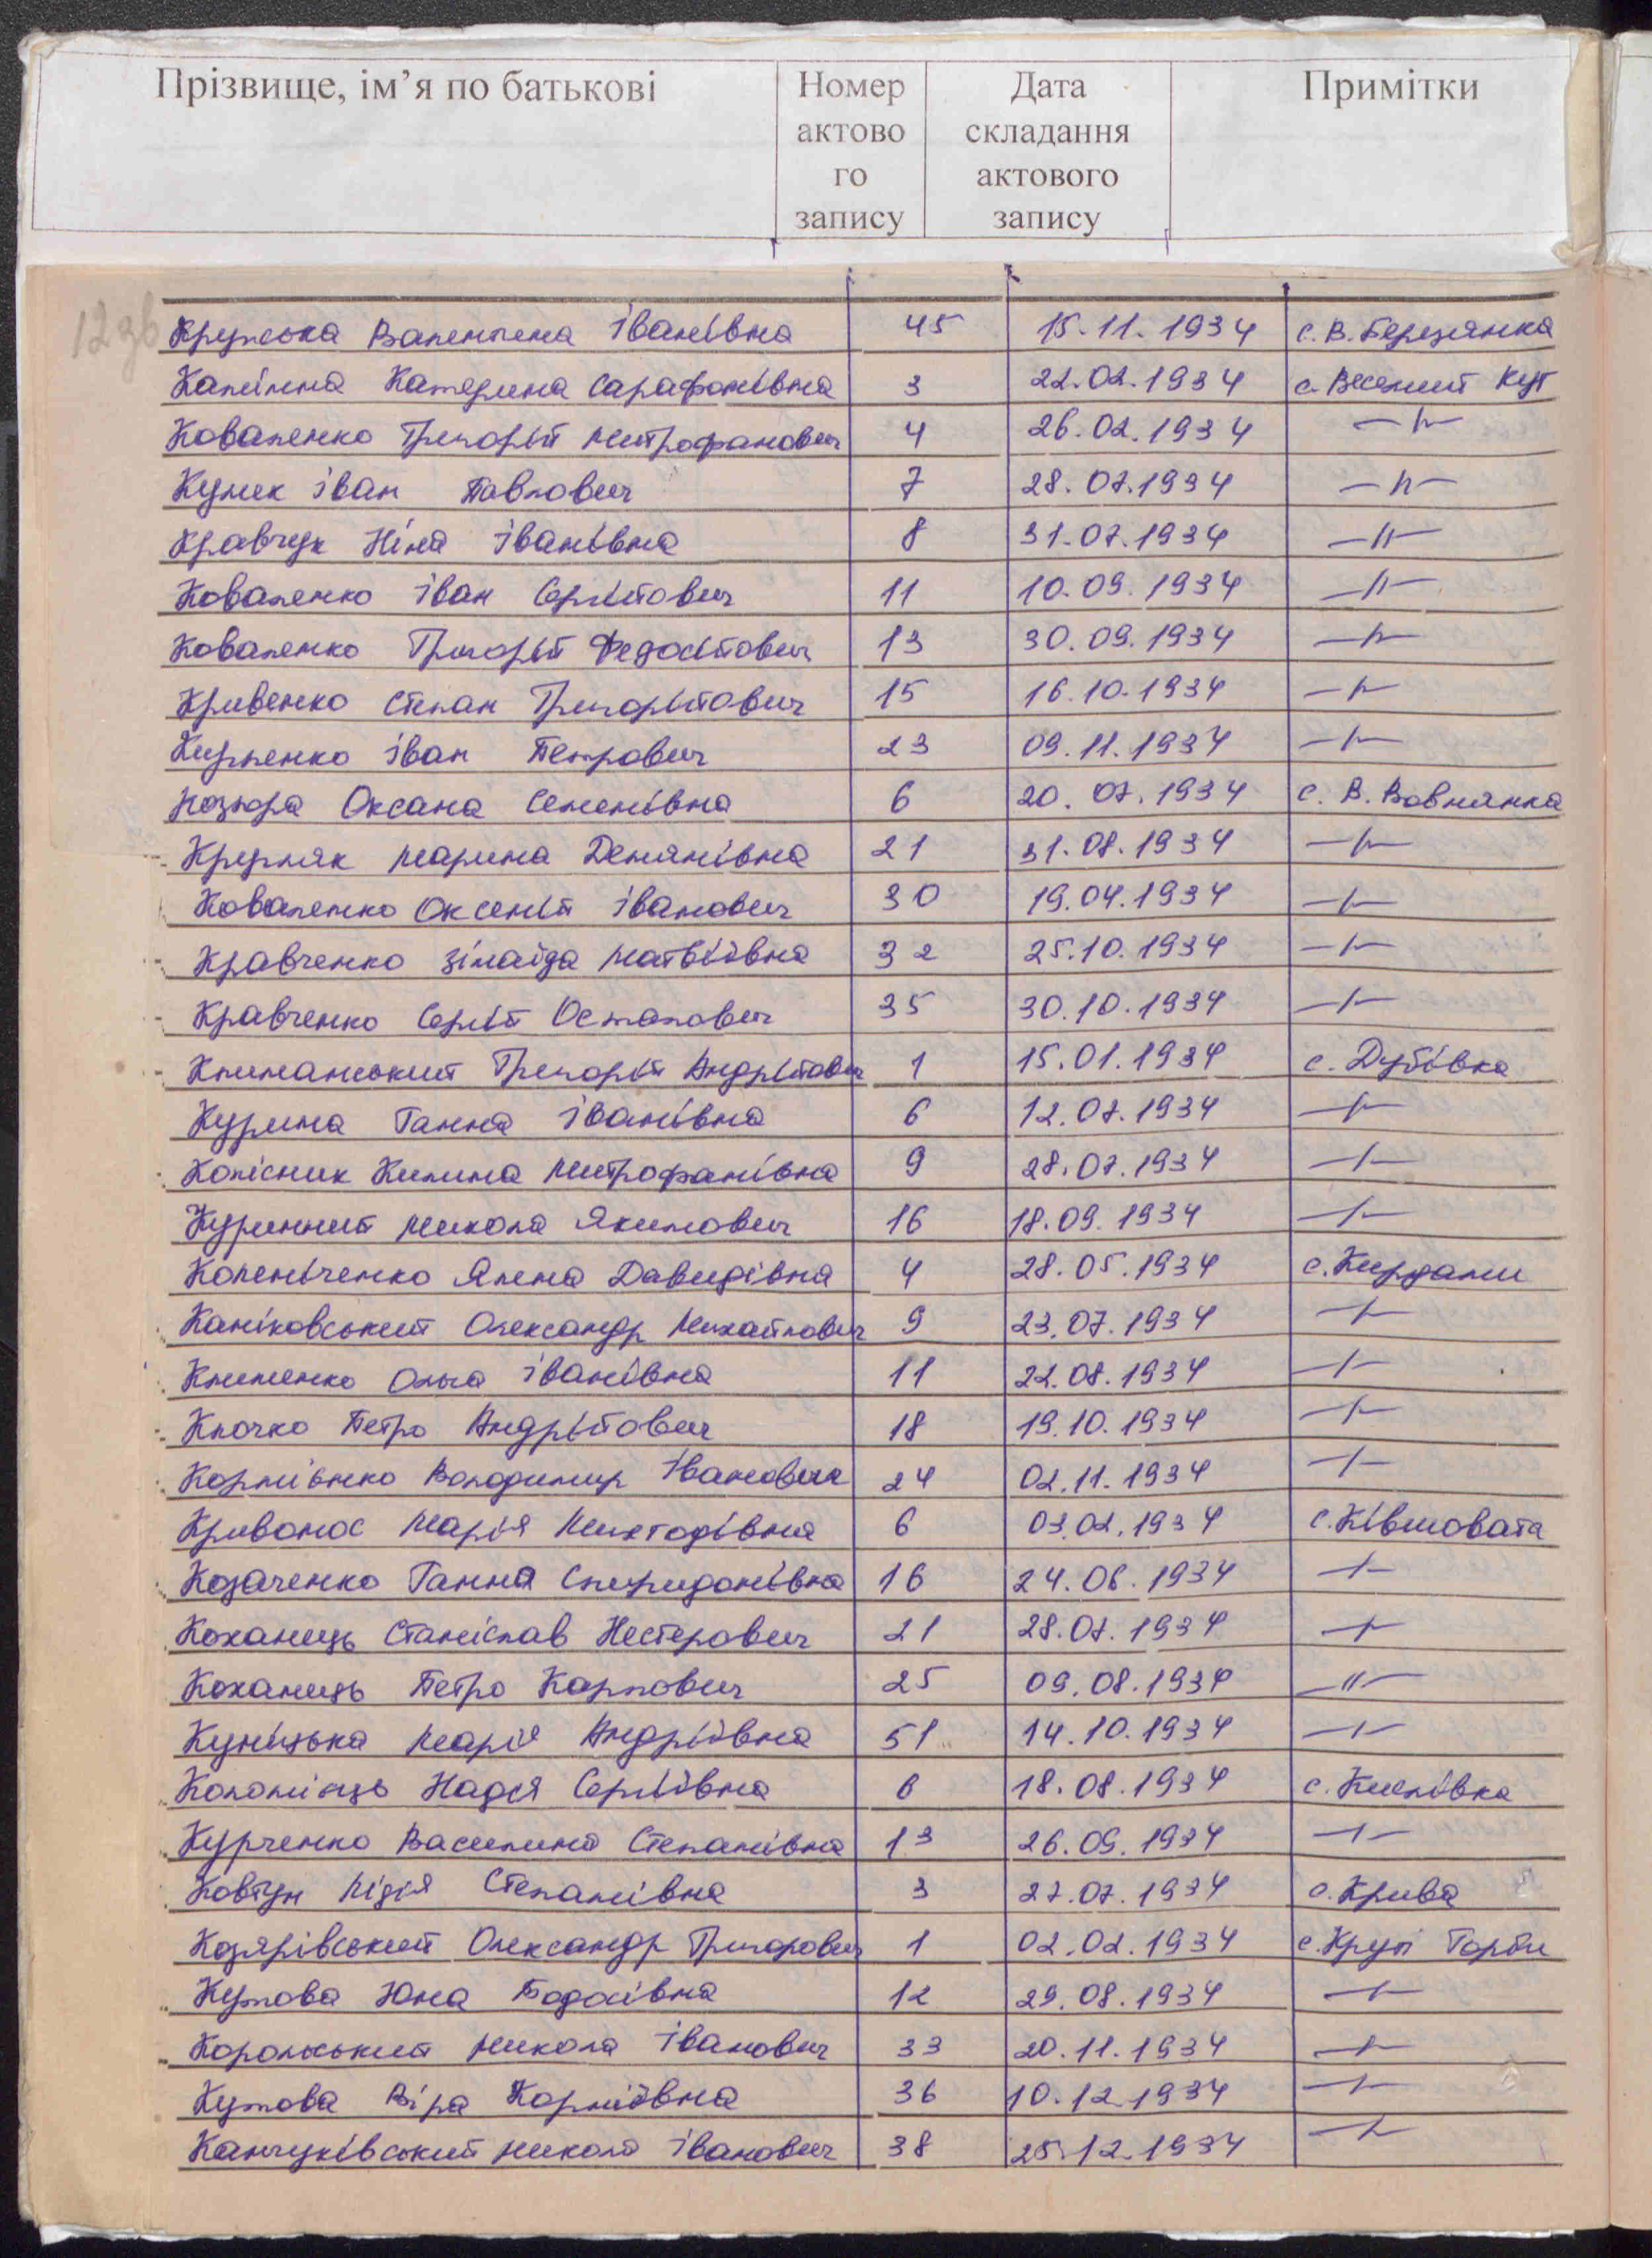 Прізвище, ім’я по батькові Номер актово го запису Дата складання актового запису Примітки
12зв
Валентина Іванівна 45 15.11.1934 с. В. Березянка
Калінна Катерина Сарафонівна 3 22.02.1934 с. Веселий Кут
Коваленко Григорій Митрофанович 4 26.02.1934 -//-
Кулик Іван Павлович 7 28.07.1934 -//-
Кравчук Ніна Іванівна 8 31.07.1934 -//-
Коваленко Іван Сергійович 11 10.09.1934 -//-
Коваленко Григорій Федосійович 13 30.09.1934 -//-
Кривенко Степан Григорійович 15 16.10.1934 -//-
Кириленко Іван Петрович 23 09.11.1934 -//-
Козюра Оксана Семенівна 6 20.07.1934 с. В. Вовнянка
Марина Демянівна 21 31.08.1934 -//-
Коваленко Оксентій Іванович 30 19.04.1934 -//-
Кравченко Зінаїда Матвіївна 32 25.10.1934 -//-
Кравченко Сергій Остапович 35 30.10.1934 -//-
Климанський Григорій Андрійович 1 15.01.1934 с. Дубівка
Курина Ганна Іванівна 6 12.07.1934 -//-
Колісник Килина Митрофанівна 9 28.07.1934 -//-
Куринний Микола Якимович 16 18.09.1934 -//-
Коленіченко Ялена Давидівна 4 28.05.1934 с. Кирдани
Каніковський Олександр Михайлович 9 23.07.1934 -//-
Клименко Ольга Іванівна 11 22.08.1934 -//-
Клочко Петро Андрійович 18 19.10.1934 -//-
Корнієнко Володимир Іванович 24 02.11.1934 -//-
Кривонос Марія Мехтодівна 6 03.02.1934 с. Ківшовата
Козаченко Ганна Спиридонівна 16 24.06.1934 -//-
Коханець Станіслав Нестерович 21 28.07.1934 -//-
Коханець Петро Карпович 25 09.08.1934 -//-
Куницька Марія Андріївна 51 14.10.1934 -//-
Коломієць Надія Сергіївна 6 18.08.1934 с. Кислівка
Курченко Василина Степанівна 13 26.09.1934 -//-
Ковтун Лідія Степанівна 3 27.07.1934 с. Крива
Козярівський Олександр Григорович 1 02.02.1934 с. Круті Горби
Кутова Юна Тодосівна 12 29.08.1934 -//-
Корольський Микола Іванович 33 20.11.1934 -//-
Кутова Віра Корніївна 36 10.12.1934 -//-
Канчуківський Микола Іванович 38 25.12.1934 -//-